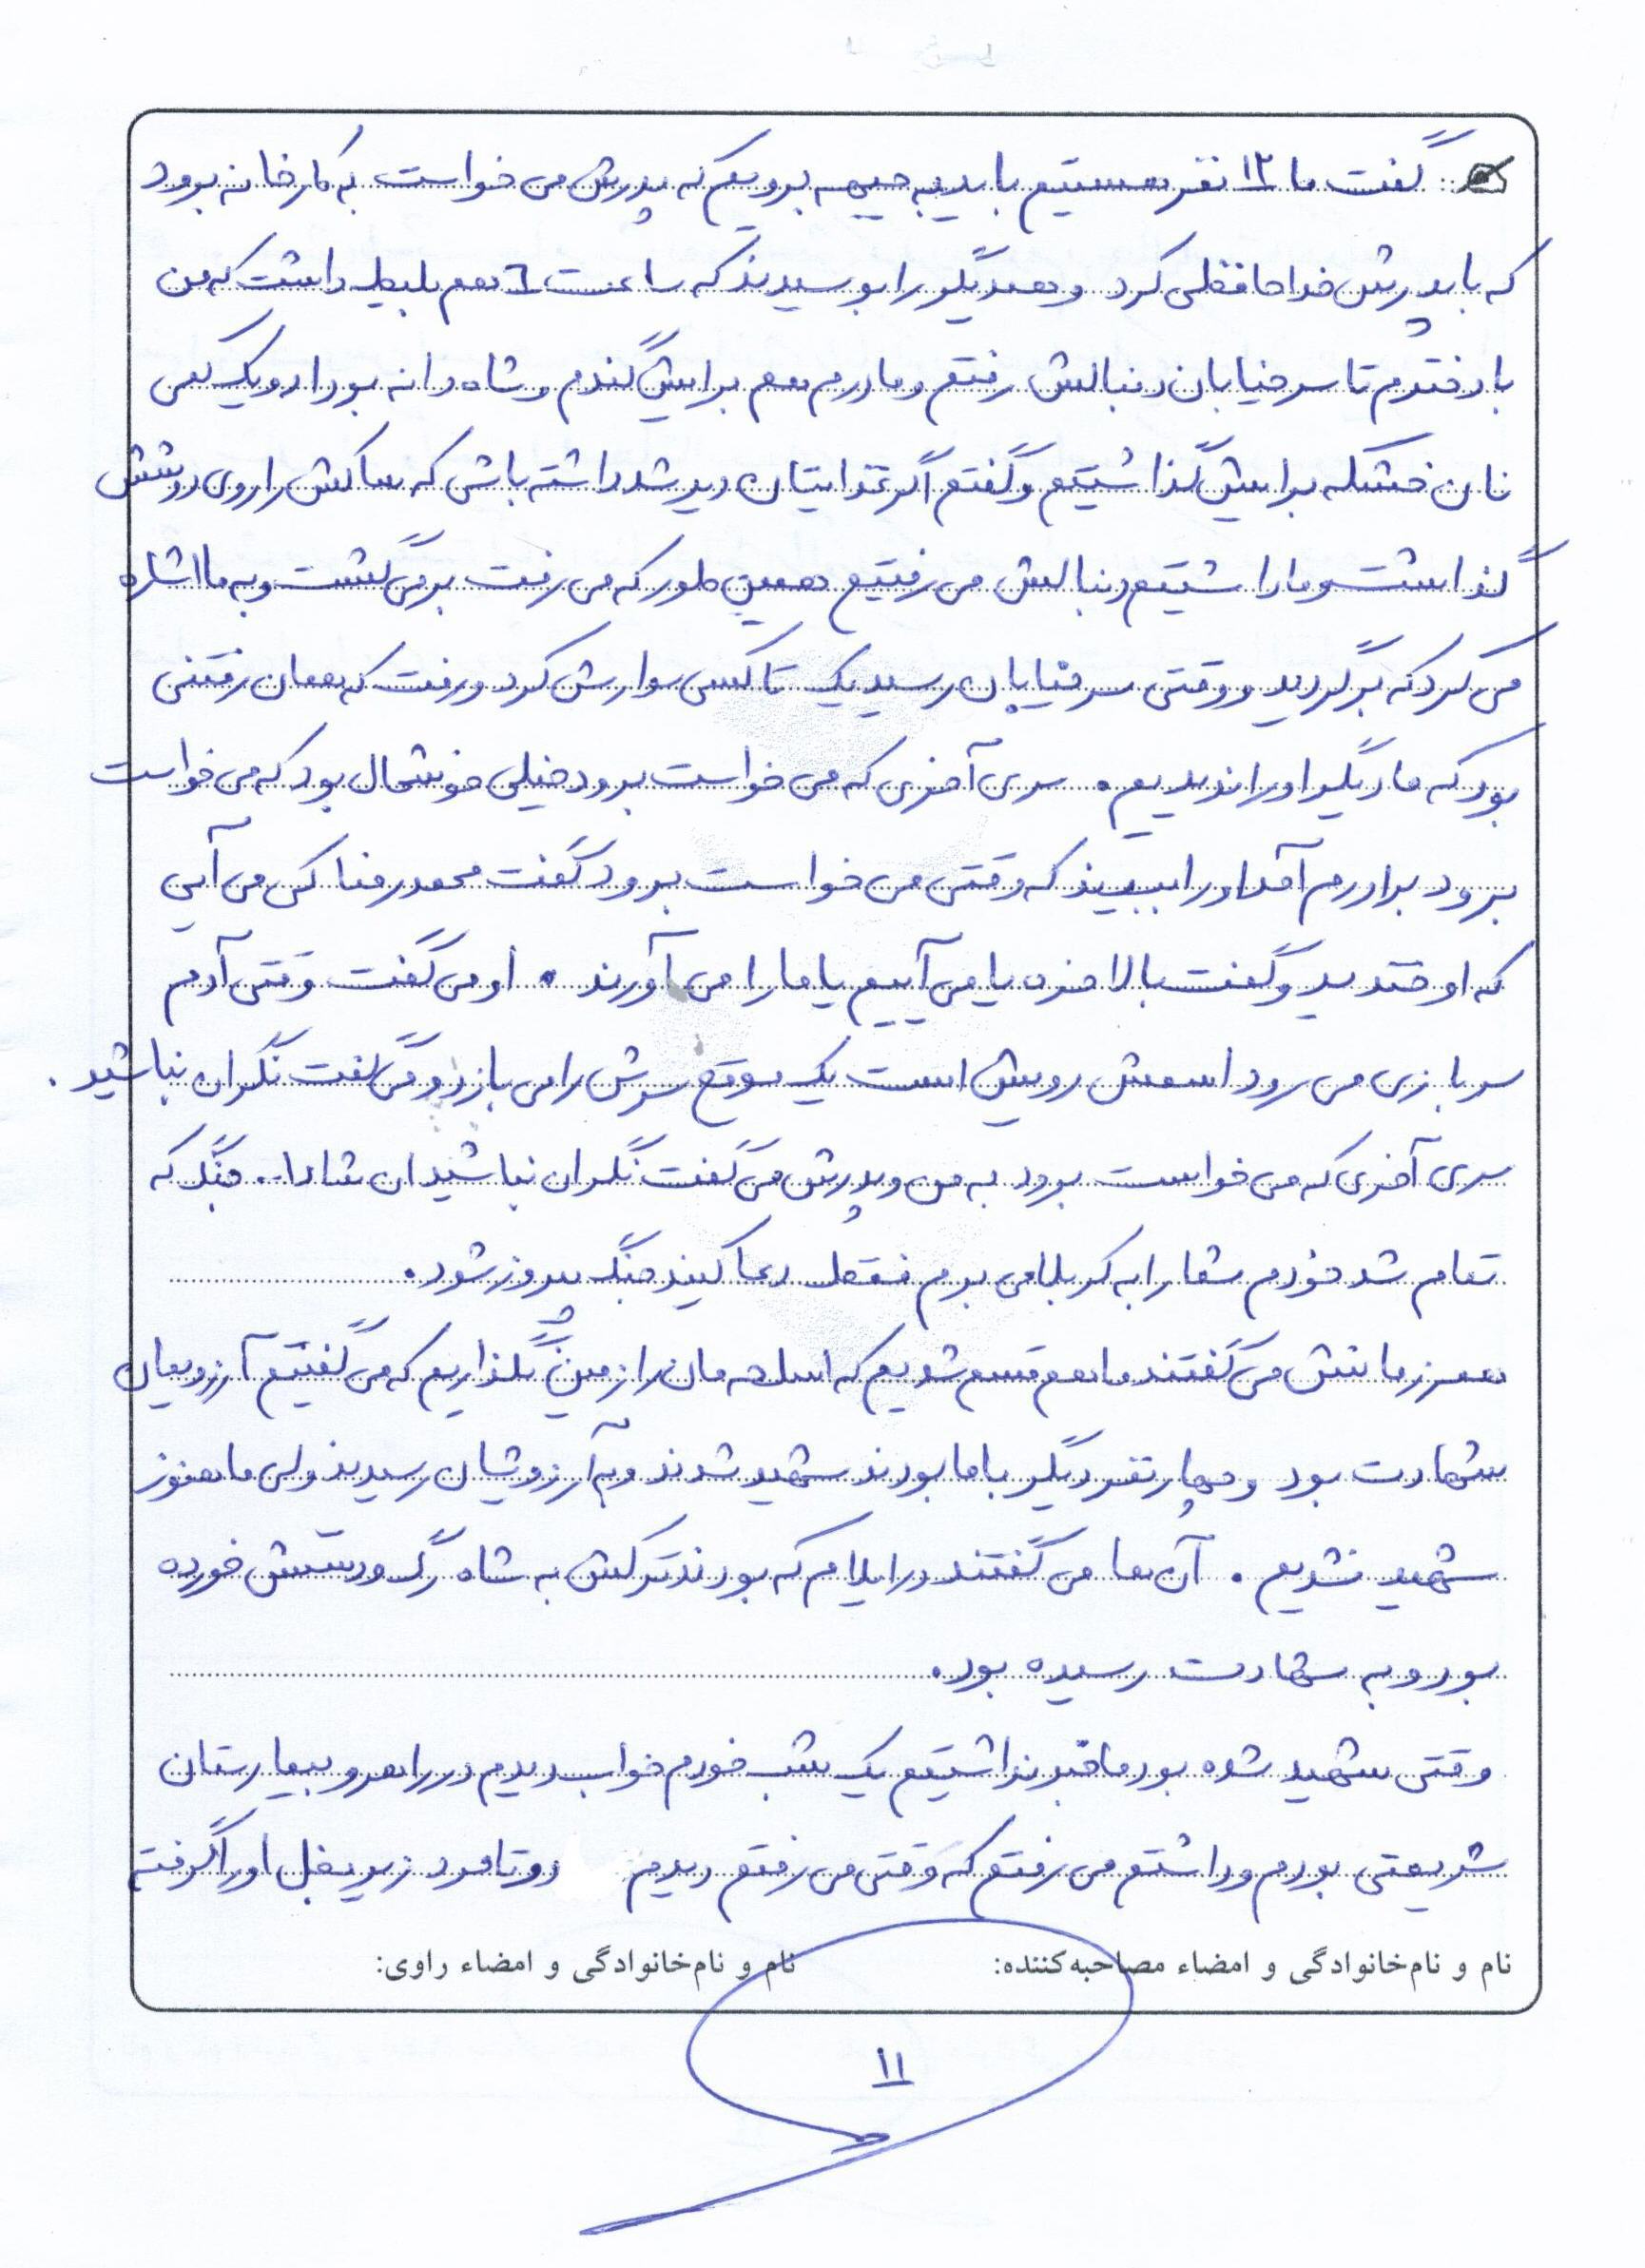 گفت ما ۱۲ نفر هستیم باید به جبهه برویم که پدرش می خواست به کارخانه برود
که با پدرش خداحافظی کرد و همدیگر را بوسیدند که ساعت ٦ هم بلیط داشت که من
با دخترم تا سر خیابان دنبالش رفتم و مادرم هم برایش گندم و شاه دانه بو داد و یک کمی
نان خشکه برایش گذاشتیم و گفتم اگر غذایتان دیر شد داشته باشی که ساکش را روی دوشش
گذاشت و ما داشتیم دنبالش می رفتیم همین طور که می رفت برمی گشت و به ما اشاره
می کرد که برگردید و وقتی سر خیابان رسید یک تاکسی سوارش کرد و رفت که همان رفتنی
بود که ما دیگر او را ندیدیم. سری آخری که می خواست برود خیلی خوشحال بود که می خواست
برود برادرم آمد او را ببیند که وقتی می خواست برود گفت محمدرضا کی می آیی
که او خندید و گفت بالاخره یا می آییم یا ما را می آورند. او می گفت وقتی آدم
سربازی می رود اسمش رویش است یک موقع سرش را می بازد و می گفت نگران نباشید.
سری آخری که می خواست برود به من و پدرش می گفت نگران نباشید ان شاءا.. جنگ که
تمام شد خودم شما را به کربلا می برم فقط دعا کنید جنگ پیروز شود.
همرزمانش می گفتند ما هم قسم شدیم که اسلحه مان را زمین نگذاریم که می گفتیم آرزویمان
شهادت بود و چهار نفر دیگر با ما بودند شهید شدند و به آرزویشان رسیدند ولی ما هنوز
شهید نشدیم. آن ها می گفتند در ایلام که بودند ترکش به شاه رگ دستش خورده
بود و به شهادت رسیده بود.
وقتی شهید شده بود ما خبر نداشتیم یک شب خودم خواب دیدم در راهرو بیمارستان
شریعتی بودم و داشتم می رفتم که وقتی می رفتم دیدم دو تا مرد زیر بغل او را گرفته
نام و نام‌خانوادگی و امضاء مصاحبه‌کننده: نام و نام‌خانوادگی و امضاء راوی:
۱۱